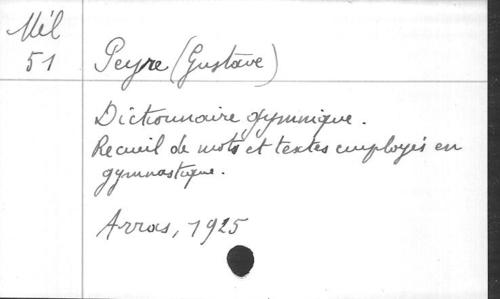 Mél
51
Peyre (Gustave)
Dictionnaire gymnique.
Recueil de mots et textes employés en
gymnastique.
Arras, 1925